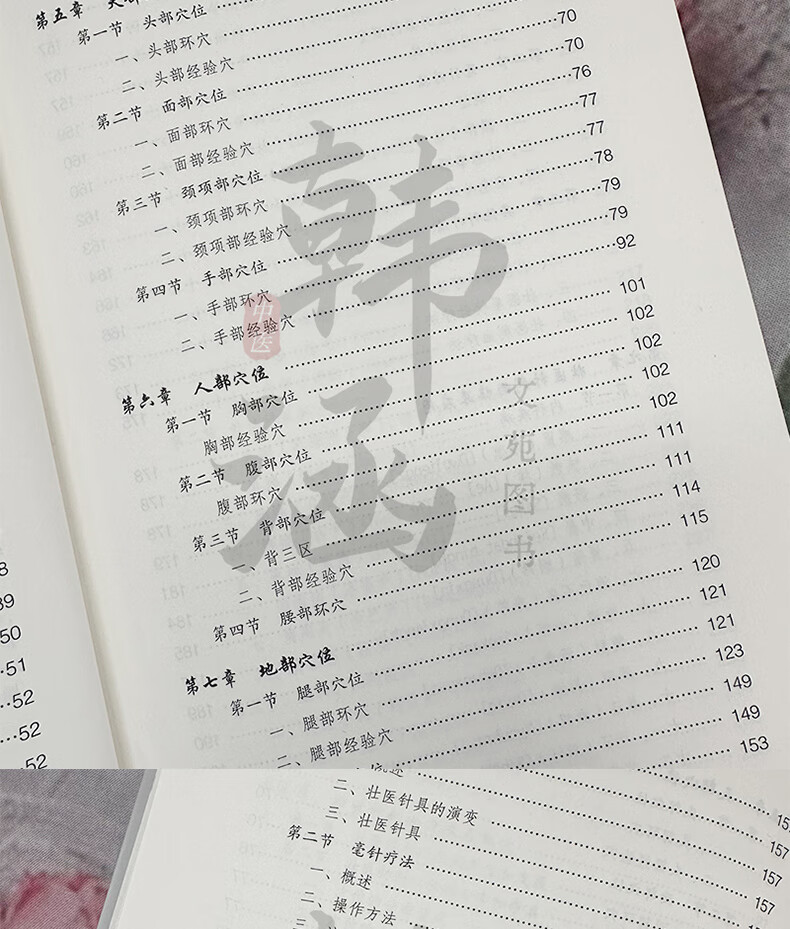 第一节 头部穴位
一、头部环穴
二、头部经验穴
第二节 面部穴位 70
一、面部环穴 70
二、面部经验穴 76
第三节 颈项部穴位 77
一、颈项部环穴 77
二、颈项部经验穴 78
第四节 手部穴位 79
一、手部环穴 79
二、手部经验穴 92
第六章 人部穴位 101
第一节 胸部穴位 102
胸部经验穴 102
第二节 腹部穴位 102
腹部环穴 102
第三节 背部穴位 111
一、背三区 111
二、背部经验穴 114
第四节 腰部环穴 115
第七章 地部穴位 120
第一节 腿部穴位 121
一、腿部环穴 121
二、腿部经验穴 123
149
149
153
50
51
52
52
52
韩涵
中医
文苑图书
二、壮医针具的演变
三、壮医针具
第二节 毫针疗法
一、概述
二、操作方法
157
157
157